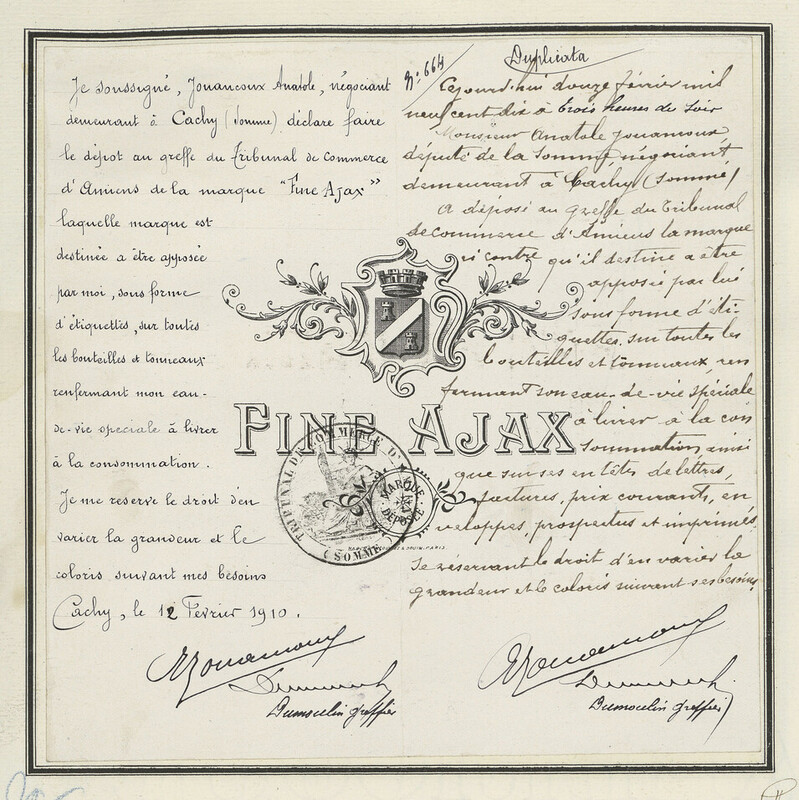 Je soussigné, Jouancoux Anatole, négociant
demeurant à Cachy (Somme) déclare faire
le dépot au greffe du Tribunal de Commerce
d'Amiens de la marque "Fine Ajax"
laquelle marque est
destinée a être apposée
par moi, sous forme
d'étiquettes, sur toutes
les bouteilles et tonneaux
renfermant mon eau-
de-vie speciale à livrer
à la consommation.
Je me reserve le droit d'en
varier la grandeur et le
coloris suivant mes besoins
Cachy, le 12 Février 1910.
Dumoulin greffier
Duplicata
N° 664
Cejourd'hui douze février mil
neuf cent dix à trois heures du soir
Monsieur Anatole Jouancoux
député de la Somme négociant
demeurant à Cachy (Somme)
A déposé au greffe du Tribunal
de commerce d'Amiens la marque
ci contre qu'il destine a être
apposée par lui
sous forme d'éti-
quettes, sur toutes les
bouteilles et tonneaux, ren
fermant son eau-de-vie spéciale
à livrer à la con
sommation ainsi
que sur ses en têtes de lettres,
factures, prix courants, en
veloppes, prospectus et imprimés.
Se réservant le droit d'en varier la
grandeur et le coloris suivant ses besoins.
Dumoulin greffier
FINE AJAX
TRIBUNAL DE COMMERCE D'
(SOMME)
MARQUE
DÉPOSÉE
PARIS